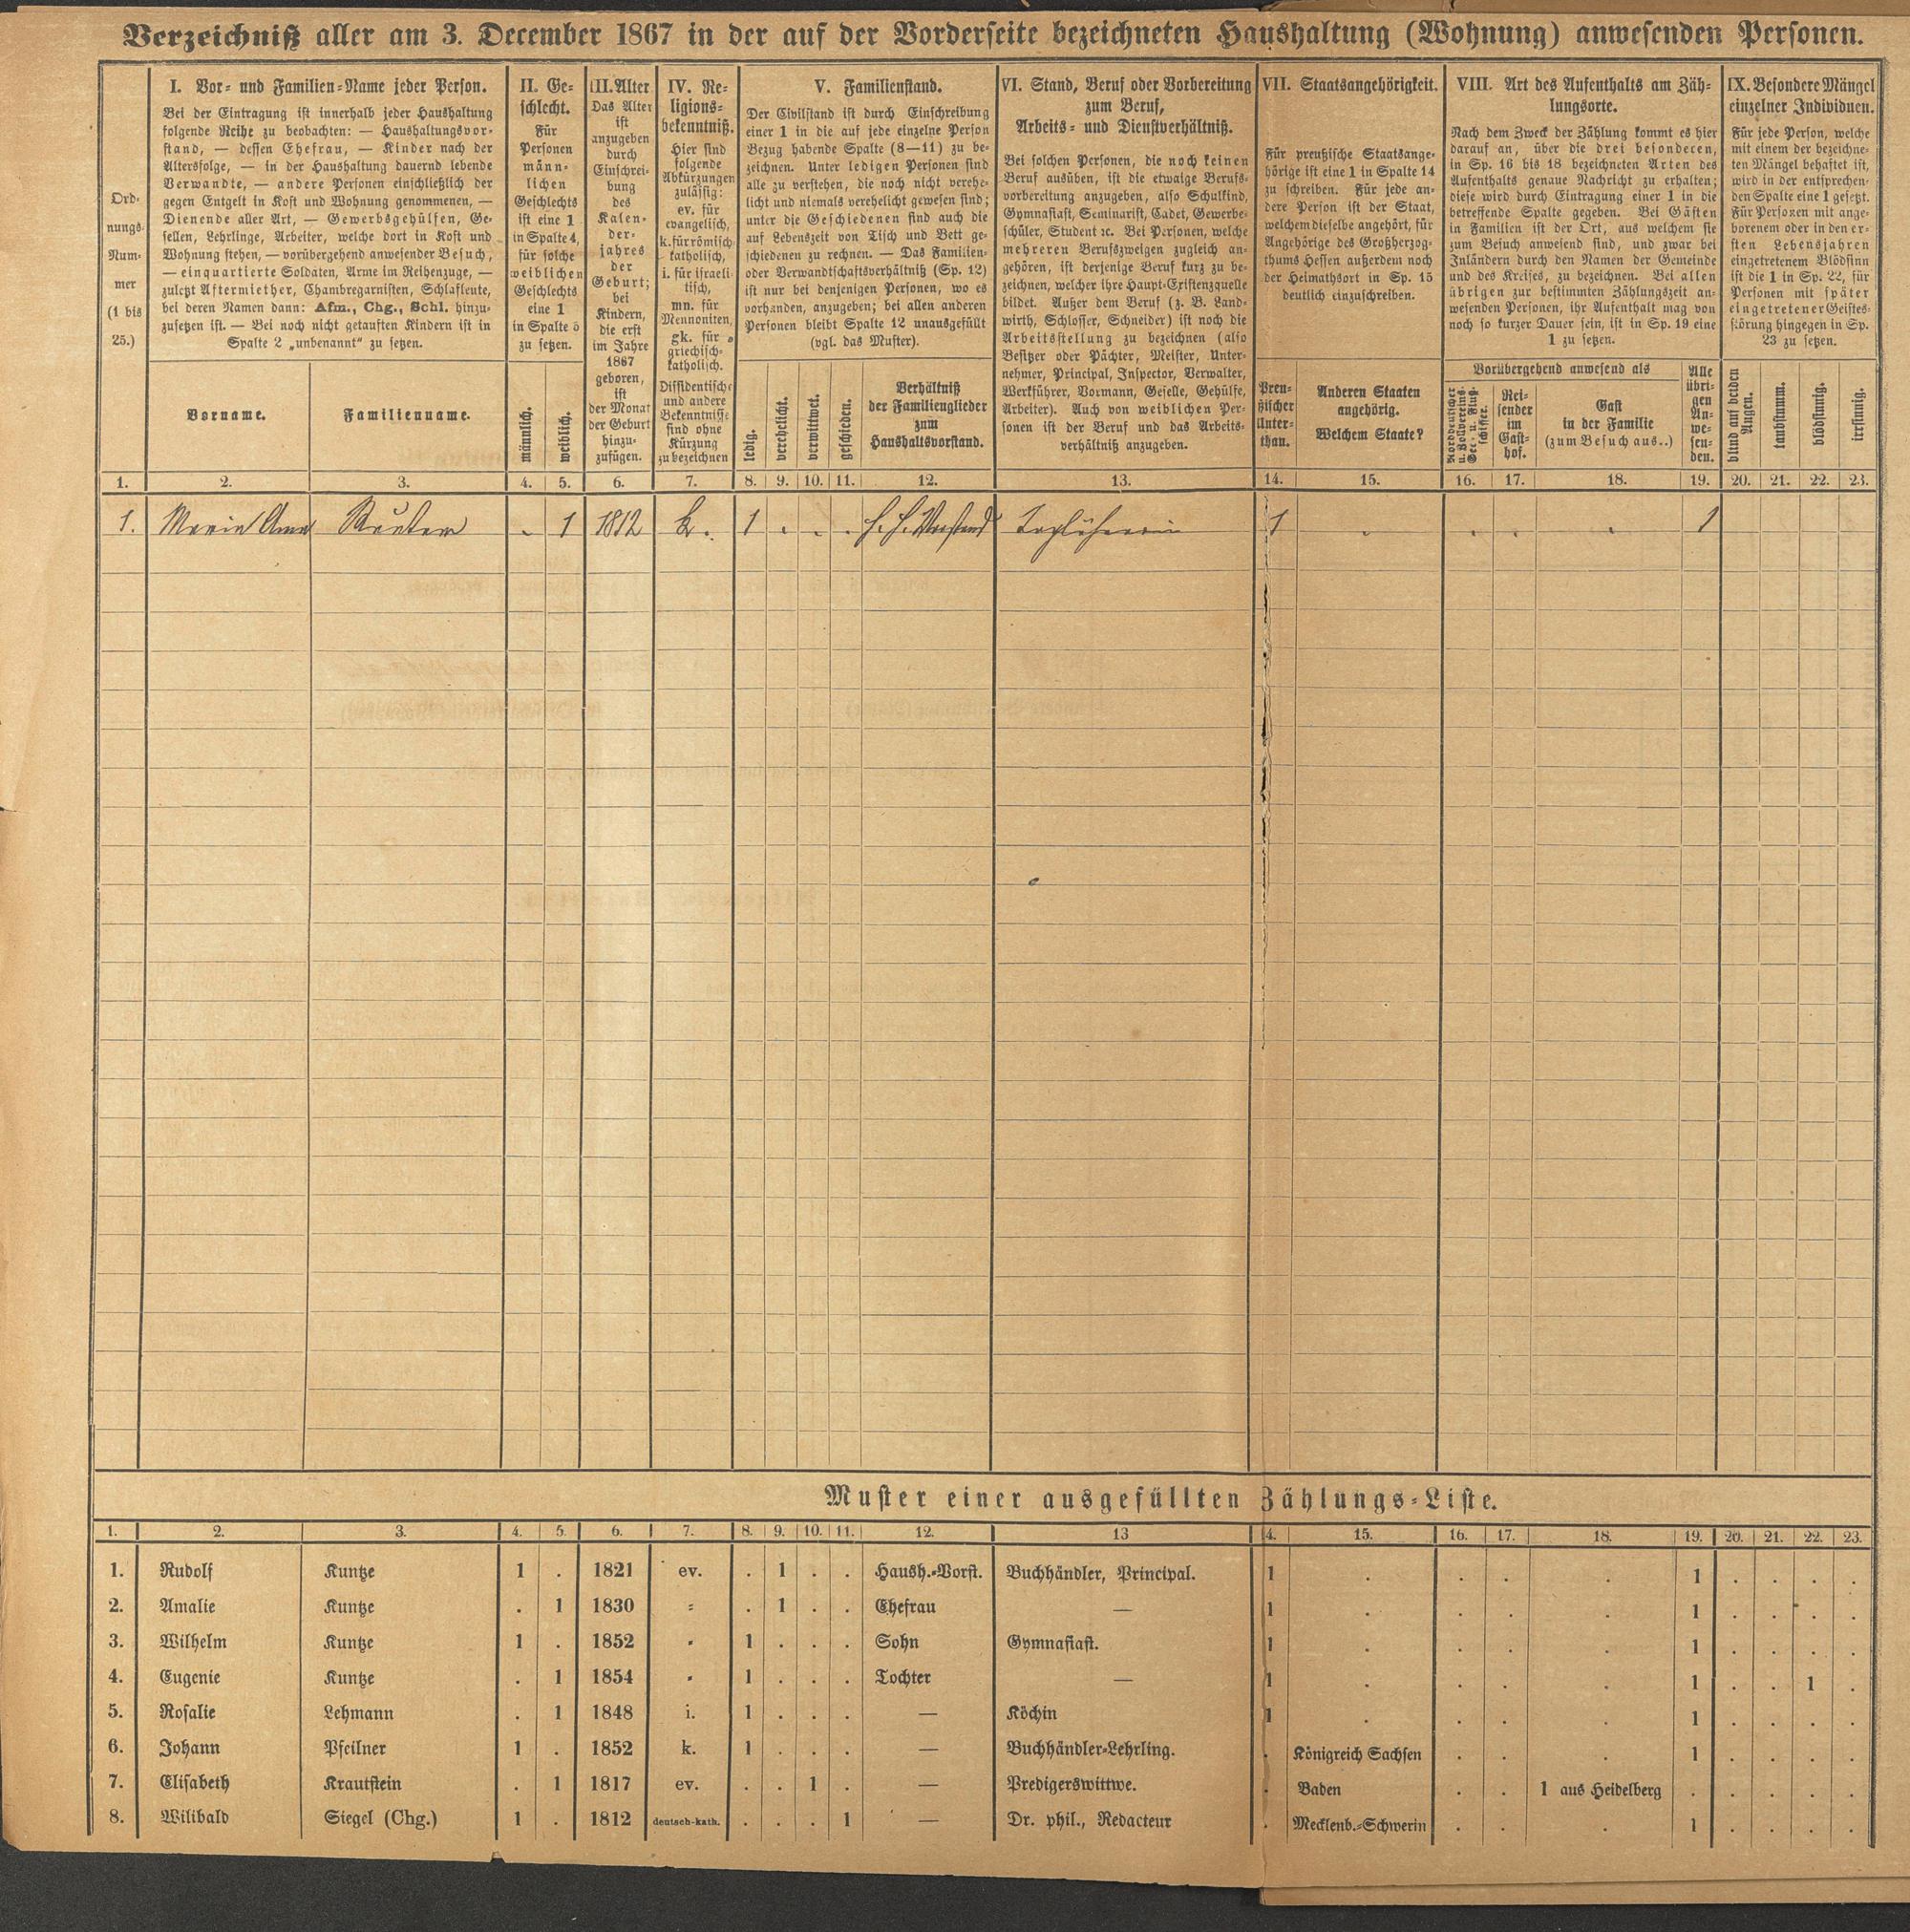 Verzeichniß aller am 3. December 1867 in der auf der Vorderseite bezeichneten Haushaltung (Wohnung) anwesenden Personen.
Ord-
nungs-
Num-
mer
(1 bis
25.)
I. Vor- und Familien-Name jeder Person.
Bei der Eintragung ist innerhalb jeder Haushaltung
folgende Reihe zu beobachten: — Haushaltungsvor-
stand, — dessen Ehefrau, — Kinder nach der
Altersfolge, — in der Haushaltung dauernd lebende
Verwandte, — andere Personen einschließlich der
gegen Entgelt in Kost und Wohnung genommenen, —
Dienende aller Art, — Gewerbsgehülfen, Ge-
sellen, Lehrlinge, Arbeiter, welche dort in Kost und
Wohnung stehen, — vorübergehend anwesender Besuch,
— einquartierte Soldaten, Arme im Reihenzuge, —
zuletzt Aftermiether, Chambregarnisten, Schlafleute,
bei deren Namen dann: Afm., Chg., Schl. hinzu-
zusetzen ist. — Bei noch nicht getauften Kindern ist in
Spalte 2 „unbenannt“ zu setzen.
Vorname.
Familienname.
II. Ge-
schlecht.
Für
Personen
männ-
lichen
Geschlechts
ist eine 1
in Spalte 4,
für solche
weiblichen
Geschlechts
eine 1
in Spalte 5
zu setzen.
männlich.
weiblich.
III. Alter
Das Alter
ist
anzugeben
durch
Einschrei-
bung
des
Kalen-
der-
jahres
der
Geburt;
bei
Kindern,
die erst
im Jahre
1867
geboren,
ist
der Monat
der Geburt
hinzu-
zufügen.
IV. Re-
ligions-
bekenntniß.
Hier sind
folgende
Abkürzungen
zulässig:
ev. für
evangelisch,
k. für römisch-
katholisch,
i. für israeli-
tisch,
mn. für
Mennoniten,
gk. für
griechisch-
katholisch.
Dissidentische
und andere
Bekenntnisse
sind ohne
Kürzung
zu bezeichnen
V. Familienstand.
Der Civilstand ist durch Einschreibung
einer 1 in die auf jede einzelne Person
Bezug habende Spalte (8—11) zu be-
zeichnen. Unter ledigen Personen sind
alle zu verstehen, die noch nicht verehe-
licht und niemals verehelicht gewesen sind;
unter die Geschiedenen sind auch die
auf Lebenszeit von Tisch und Bett ge-
schiedenen zu rechnen. — Das Familien-
oder Verwandtschaftsverhältniß (Sp. 12)
ist nur bei denjenigen Personen, wo es
vorhanden, anzugeben; bei allen anderen
Personen bleibt Spalte 12 unausgefüllt
(vgl. das Muster).
ledig.
verehelicht.
verwittwet.
geschieden.
Verhältniß
der Familienglieder
zum
Haushaltsvorstand.
VI. Stand, Beruf oder Vorbereitung
zum Beruf,
Arbeits- und Dienstverhältniß.
Bei solchen Personen, die noch keinen
Beruf ausüben, ist die etwaige Berufs-
vorbereitung anzugeben, also Schulkind,
Gymnasiast, Seminarist, Cadet, Gewerbe-
schüler, Student ꝛc. Bei Personen, welche
mehreren Berufszweigen zugleich an-
gehören, ist derjenige Beruf kurz zu be-
zeichnen, welcher ihre Haupt-Existenzquelle
bildet. Außer dem Beruf (z. B. Land-
wirth, Schlosser, Schneider) ist noch die
Arbeitsstellung zu bezeichnen (also
Besitzer oder Pächter, Meister, Unter-
nehmer, Principal, Inspector, Verwalter,
Werkführer, Vormann, Geselle, Gehülfe,
Arbeiter). Auch von weiblichen Per-
sonen ist der Beruf und das Arbeits-
verhältniß anzugeben.
VII. Staatsangehörigkeit.
Für preußische Staatsange-
hörige ist eine 1 in Spalte 14
zu schreiben. Für jede an-
dere Person ist der Staat,
welchem dieselbe angehört, für
Angehörige des Großherzog-
thums Hessen außerdem noch
der Heimathsort in Sp. 15
deutlich einzuschreiben.
Preu-
ßischer
Unter-
than.
Anderen Staaten
angehörig.
Welchem Staate?
VIII. Art des Aufenthalts am Zäh-
lungsorte.
Nach dem Zweck der Zählung kommt es hier
darauf an, über die drei besonderen,
in Sp. 16 bis 18 bezeichneten Arten des
Aufenthalts genaue Nachricht zu erhalten;
diese wird durch Eintragung einer 1 in die
betreffende Spalte gegeben. Bei Gästen
in Familien ist der Ort, aus welchem sie
zum Besuch anwesend sind, und zwar bei
Inländern durch den Namen der Gemeinde
und des Kreises, zu bezeichnen. Bei allen
übrigen zur bestimmten Zählungszeit an-
wesenden Personen, ihr Aufenthalt mag von
noch so kurzer Dauer sein, ist in Sp. 19 eine
1 zu setzen.
Vorübergehend anwesend als
Norddeutscher
u. Zollvereins-
See- u. Fluß-
schiffer.
Rei-
sender
im
Gast-
hof.
Gast
in der Familie
(zum Besuch aus..)
Alle
übri-
gen
An-
we-
sen-
den.
IX. Besondere Mängel
einzelner Individuen.
Für jede Person, welche
mit einem der bezeichne-
ten Mängel behaftet ist,
wird in der entsprechen-
den Spalte eine 1 gesetzt.
Für Personen mit ange-
borenem oder in den er-
sten Lebensjahren
eingetretenem Blödsinn
ist die 1 in Sp. 22, für
Personen mit später
eingetretener Geistes-
störung hingegen in Sp.
23 zu setzen.
blind auf beiden
Augen.
taubstumm.
blödsinnig.
irrsinnig.
1. 2. 3. 4. 5. 6. 7. 8. 9. 10. 11. 12. 13. 14. 15. 16. 17. 18. 19. 20. 21. 22. 23.
1. Maria Anna . 1 1812 k. 1 . . . H. H. Vorstand Taglöhnerin 1 . . . . 1
Muster einer ausgefüllten Zählungs-Liste.
1. 2. 3. 4. 5. 6. 7. 8. 9. 10. 11. 12. 13 4. 15. 16. 17. 18. 19. 20. 21. 22. 23.
1. Rudolf Kuntze 1 . 1821 ev. . 1 . . Haush.-Vorst. Buchhändler, Principal. 1 . . . . 1 . . . .
2. Amalie Kuntze . 1 1830 " . 1 . . Ehefrau — 1 . . . . 1 . . . .
3. Wilhelm Kuntze 1 . 1852 " 1 . . . Sohn Gymnasiast. 1 . . . . 1 . . . .
4. Eugenie Kuntze . 1 1854 " 1 . . . Tochter — 1 . . . . 1 . . 1 .
5. Rosalie Lehmann . 1 1848 i. 1 . . . — Köchin 1 . . . . 1 . . . .
6. Johann Pfeilner 1 . 1852 k. 1 . . . — Buchhändler-Lehrling. . Königreich Sachsen . . . 1 . . . .
7. Elisabeth Krautstein . 1 1817 ev. . . 1 . — Predigerswittwe. . Baden . . 1 aus Heidelberg . . . . .
8. Wilibald Siegel (Chg.) 1 . 1812 deutsch-kath. . . . 1 — Dr. phil., Redacteur . Mecklenb.-Schwerin . . . 1 . . . .